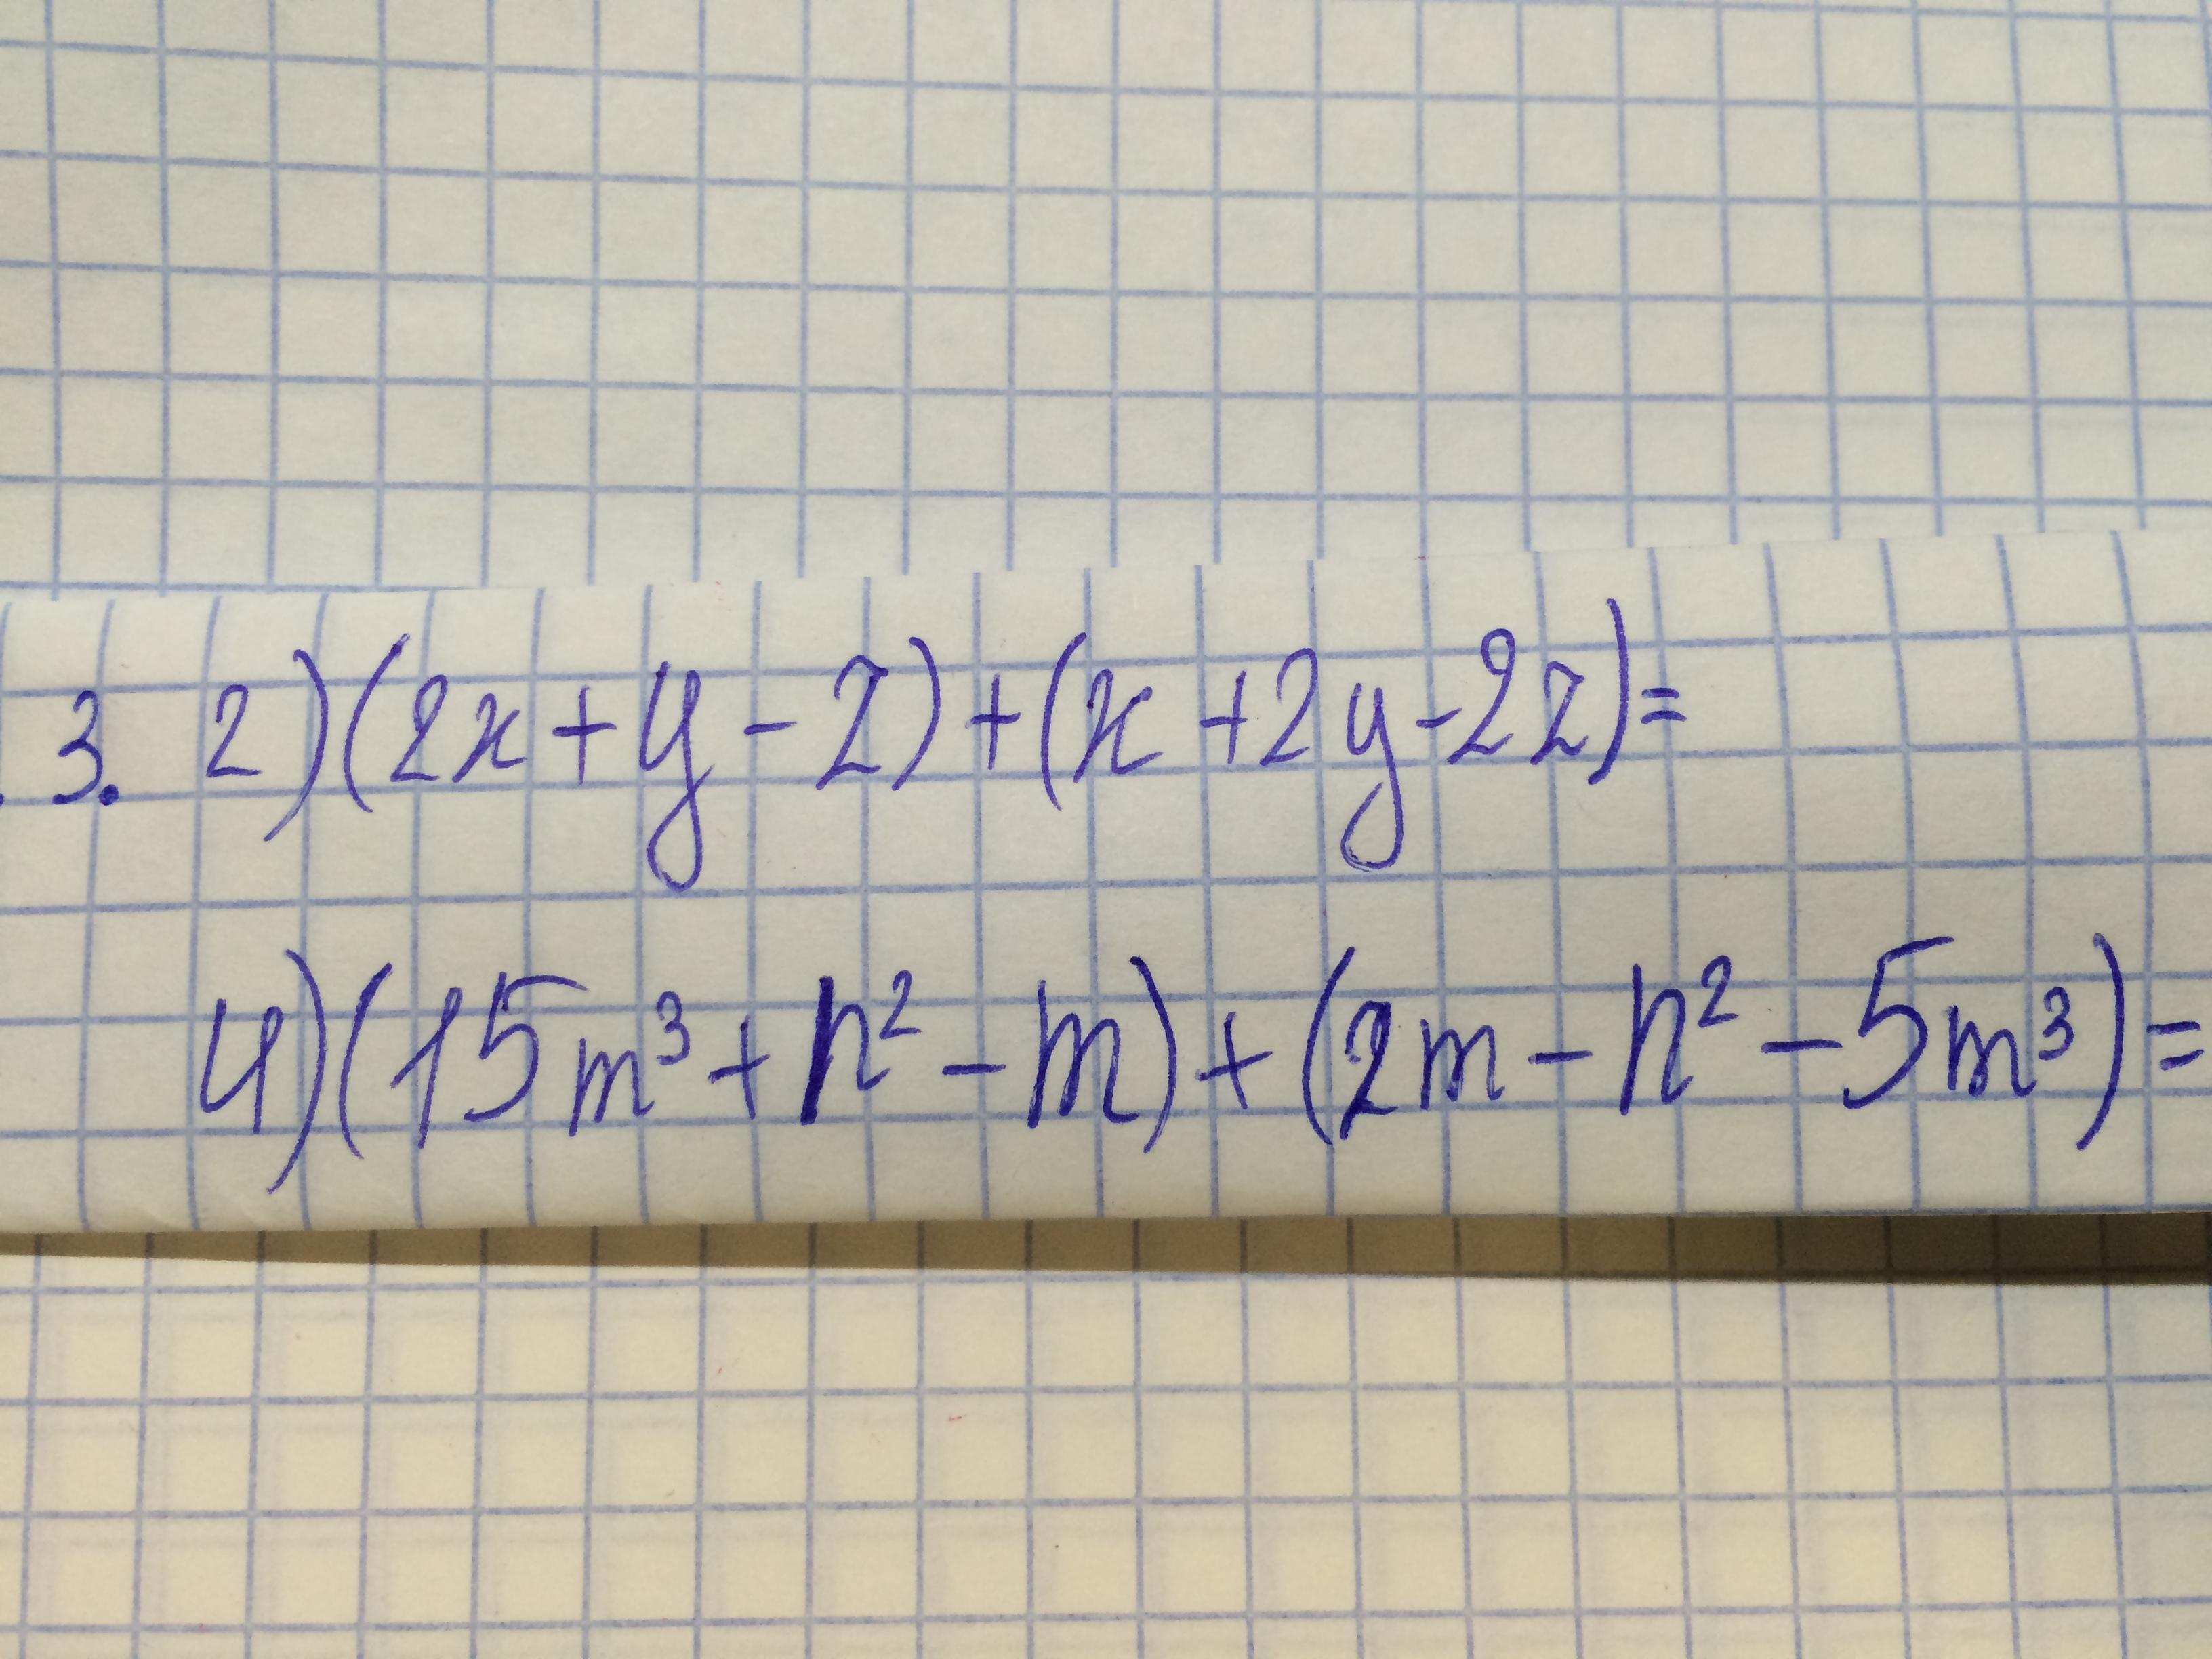 . 3. 2) (2x + y - z) + (x + 2y - 2z) =
4) (15m³ + n² - m) + (2m - n² - 5m³) =